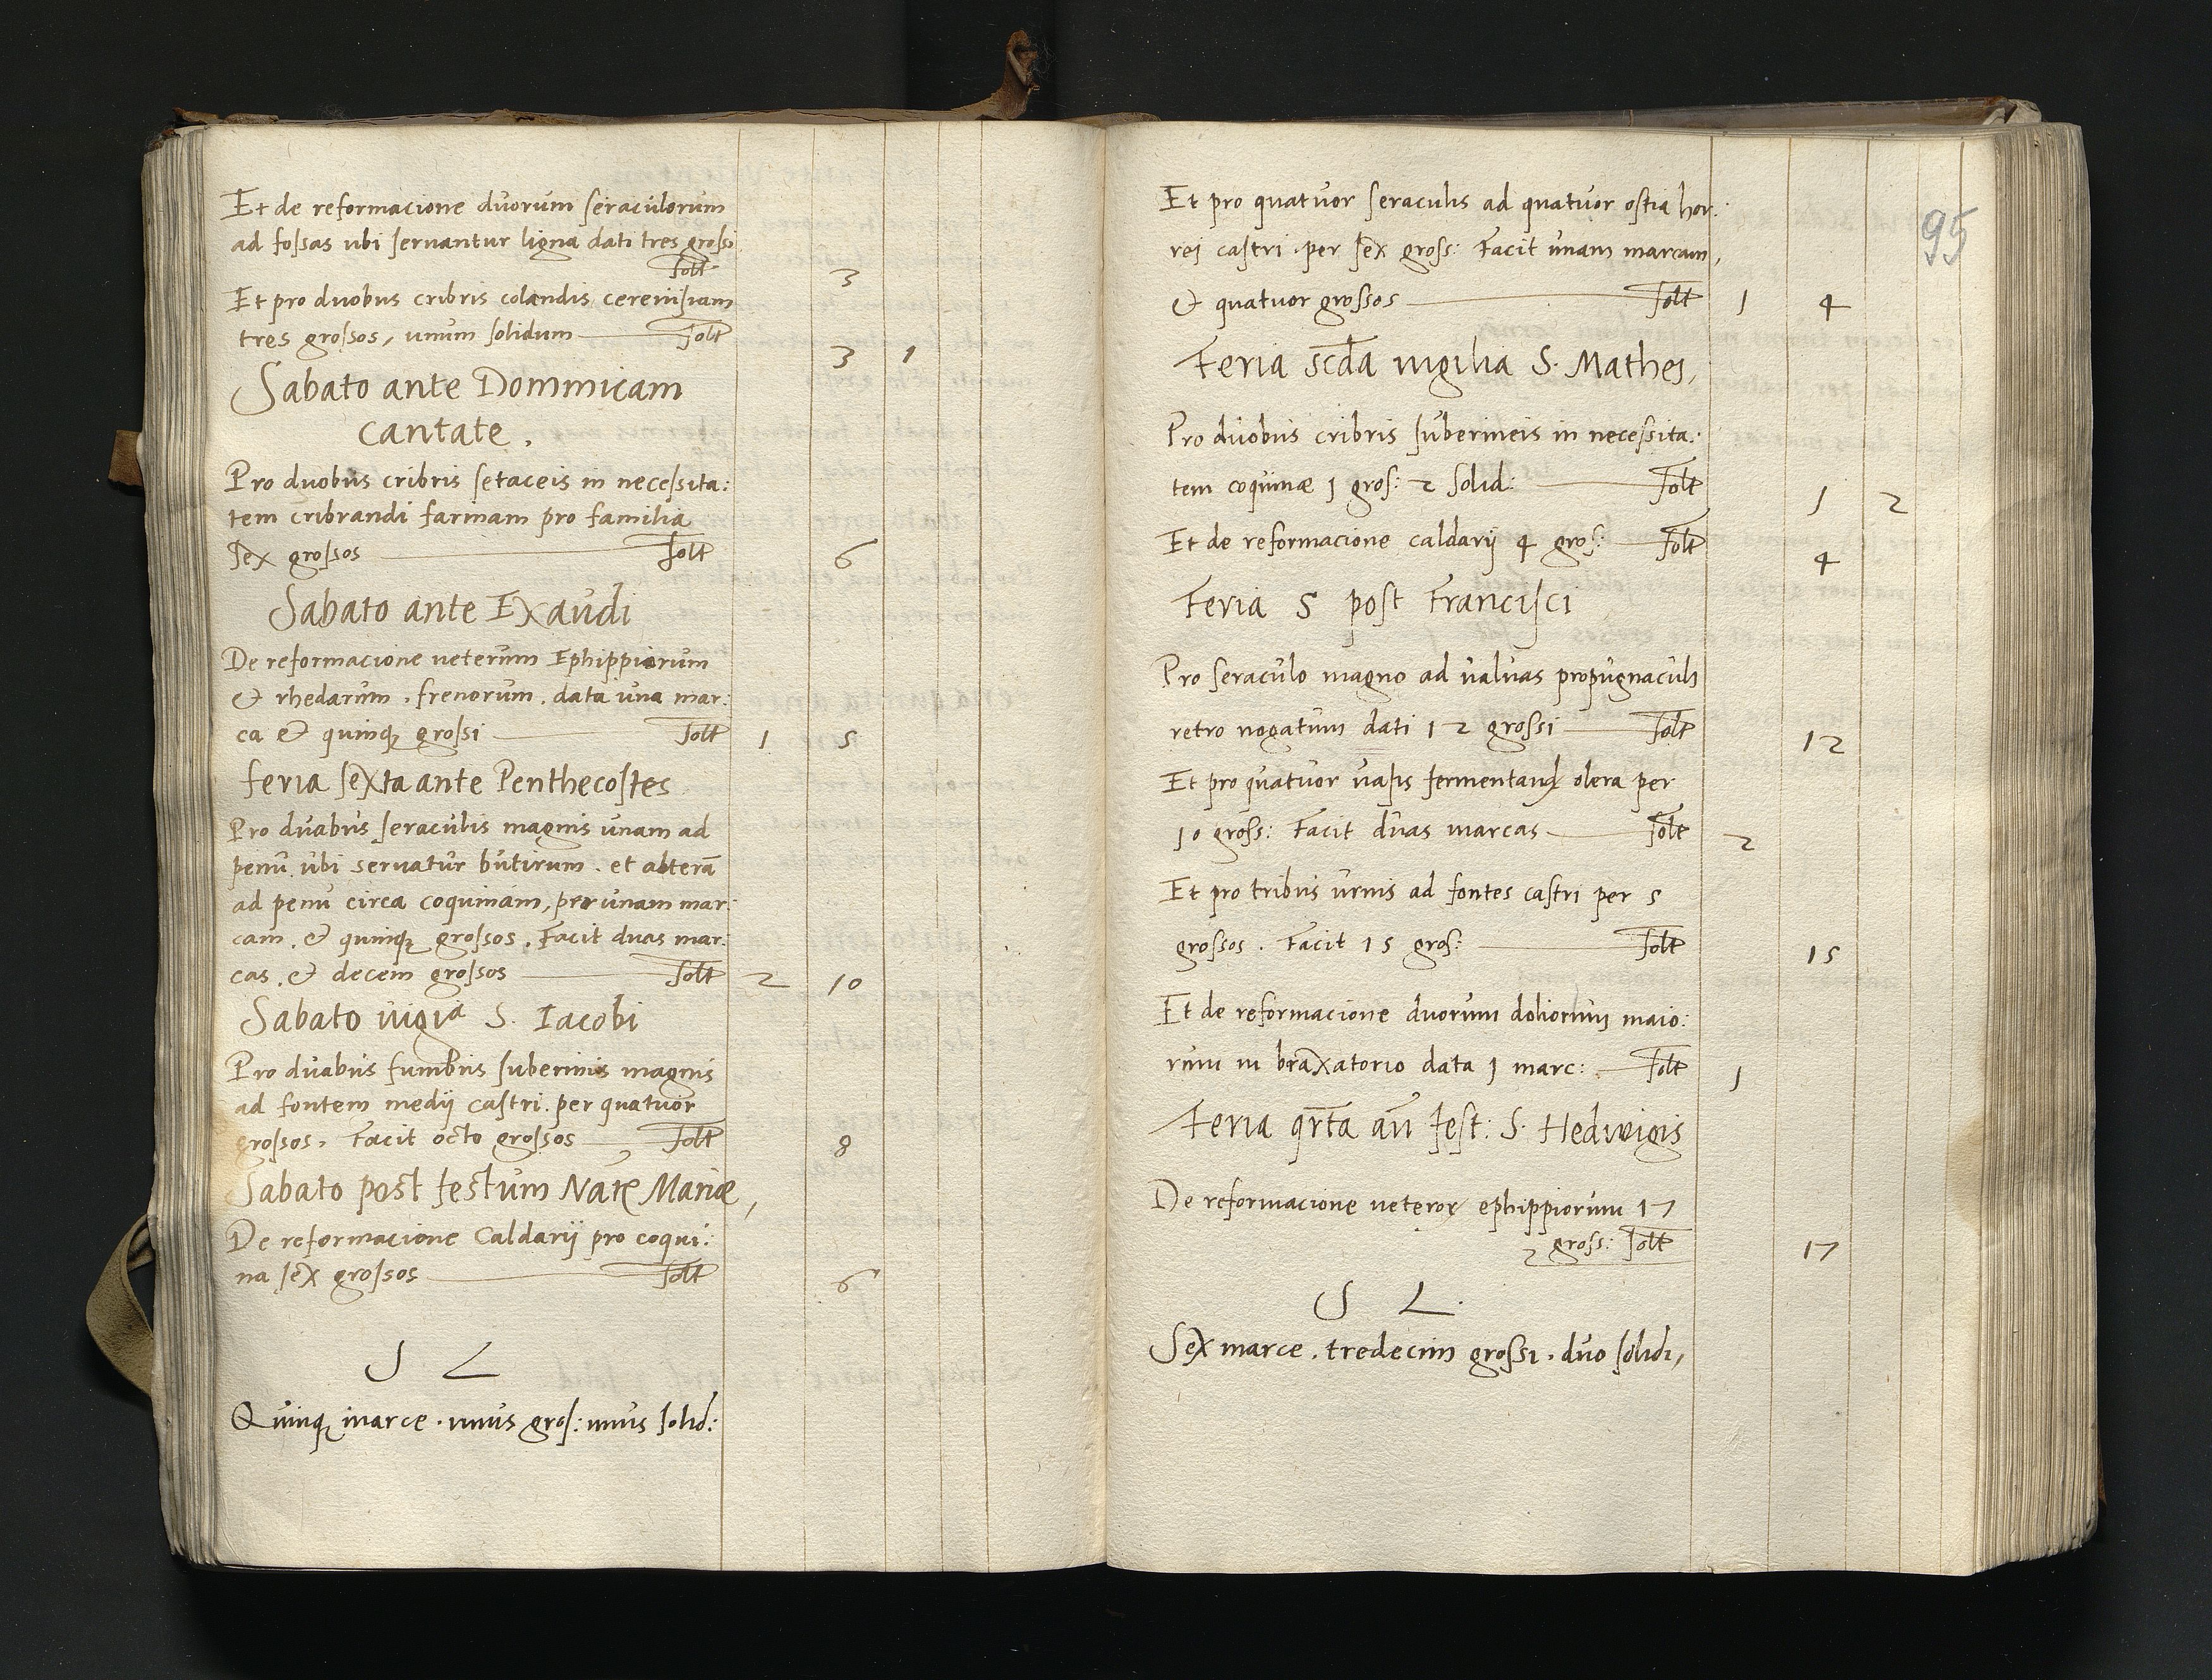 Et de reformacione duorum seraculorum
ad fossas ubi servantur ligna dati tres grossi
solt
3
Et pro duobus cribris colandis cerevisiam
tres grossos, unum solidum solt
3 1
Sabato ante Dominicam
Cantate.
Pro duobus cribris setaceis in necessita:
tem cribrandi farinam pro familia
sex grossos solt 6
Sabato ante Exaudi
De reformacione veterum Ephippiorum
& rhedarum, frenorum, data una mar:
ca & quinqз grossi solt 1 5
feria sexta ante Penthecostes
Pro duabus seraculis magnis unam ad
penu ubi servatur butirum. et alterā
ad penu circa coquinam, per unam mar:
cam, & quinqз grossos. Facit duas mar:
cas, & decem grossos solt 2 10
Sabato vigia S. Iacobi
Pro duabus suberinis magnis
ad fontem medij castri per quatuor
grossos, Facit octo grossos solt 8
Sabato post festum Natē Mariæ,
De reformacione Caldarij pro coqui:
na sex grossos solt 6
S L
Quinqз marce. unus gros: unus solid:
95
Et pro quatuor seraculis ad quatuor ostia hor:
rei castri per sex gross: Facit unam marcam,
& quatuor grossos solt 1 4
Feria scda vigilia S. Mathei,
Pro duobus cribris suberineis in necessita:
tem coquinæ 1 gros: 2 solid: solt 1 2
Et de reformacione caldarij 4 gros: solt 4
Feria 5 post Francisci
Pro seraculo magno ad valvas propugnaculi
retro nogatum dati 12 grossi solt 12
Et pro quatuor vasis fermentand olera per
10 gross: Facit duas marcas solt 2
Et pro tribus urnis ad fontes castri per 5
grossos. Facit 15 gros: solt 15
Et de reformacione duorum doliorum maio:
rum in braxatorio data 1 marc: solt 1
Feria qrta an fest: S. Hedwigis
De reformacione veteror ephippiorum 17
gross: solt 17
S L.
Sex marce. tredecim grossi. duo solidi,